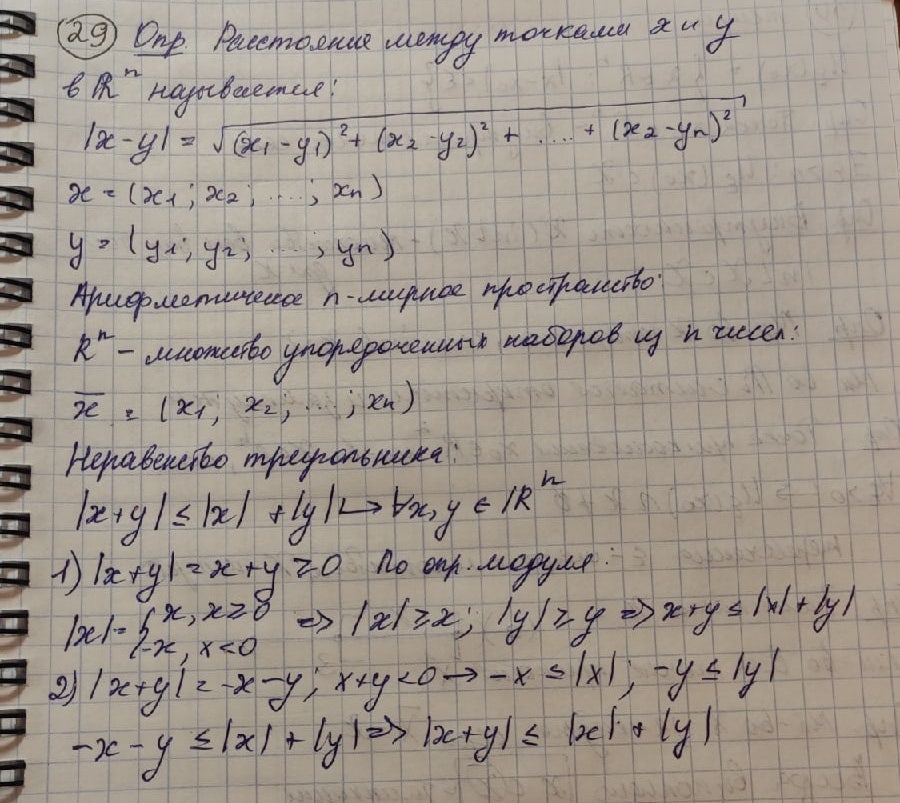 29 Опр. Расстояние между точками x и y
в ℝⁿ называется:
|x-y| = √(x₁-y₁)² + (x₂-y₂)² + .... + (x₂-yₙ)²
x = (x₁; x₂; ....; xₙ)
y = (y₁; y₂; ....; yₙ)
Арифметическое n-мирное пространство:
Rⁿ - множество упорядоченных наборов из n чисел:
x̄ = (x₁, x₂; ...; xₙ)
Неравенство треугольника:
|x+y| ≤ |x| + |y| ↦ ∀x, y ∈ ℝⁿ
1) |x+y| = x+y ≥ 0 По опр. модуля:
|x| = { x, x≥0 ⇒ |x| ≥ x; |y| ≥ y ⇒ x+y ≤ |x| + |y|
-x, x<0
2) |x+y| = -x-y; x+y<0 → -x ≤ |x|; -y ≤ |y|
-x-y ≤ |x| + |y| ⇒ |x+y| ≤ |x| + |y|